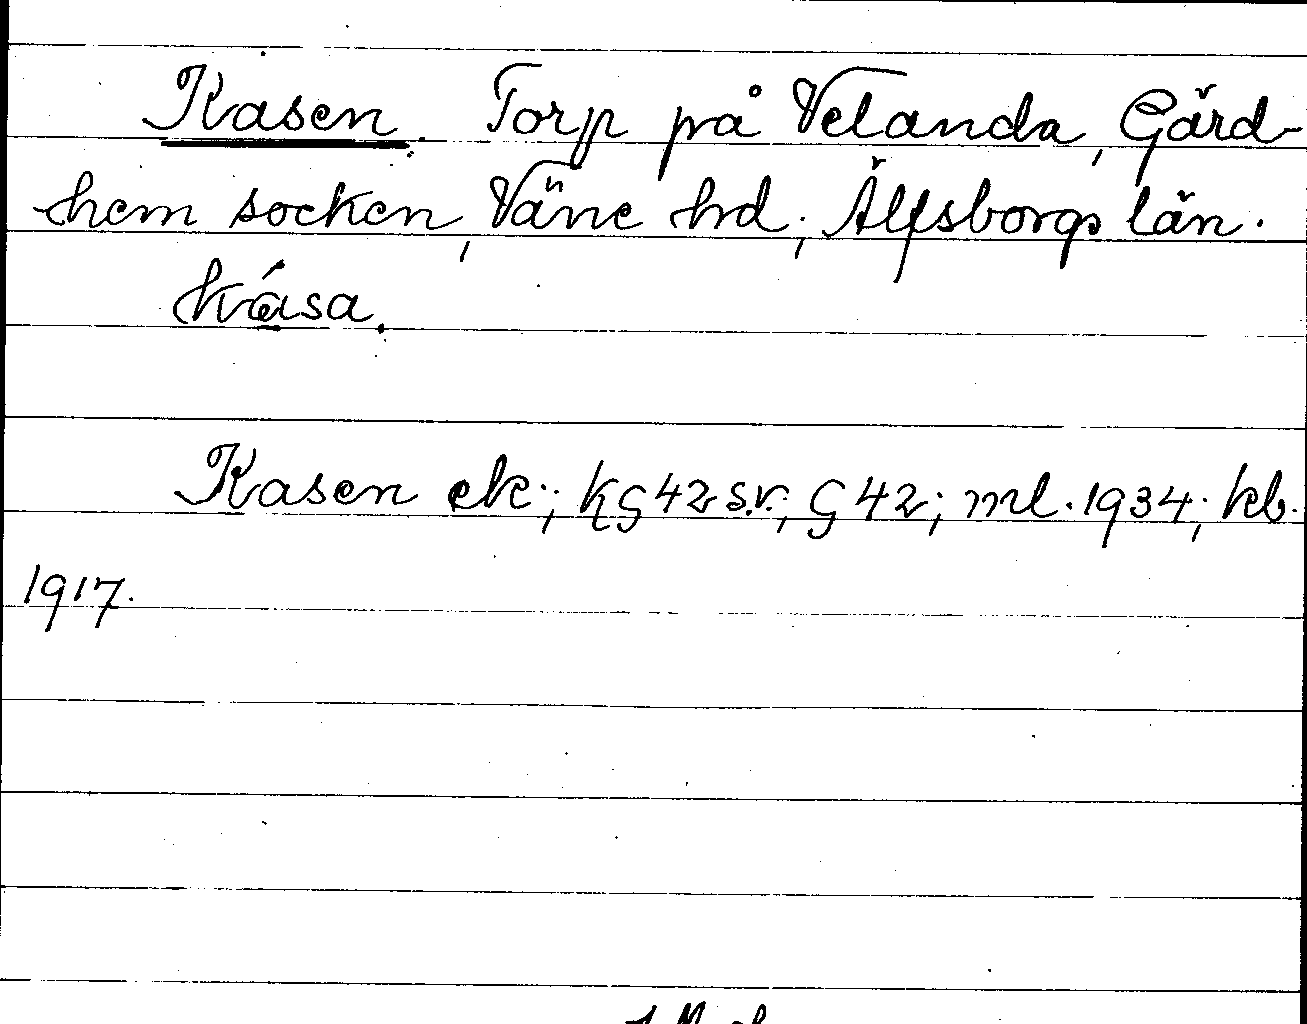 Kasen. Torp på Velanda, Gärd-
hem socken, Väne hd, Älfsborgs län.
kása.
Kasen ek; KG42 s.v.; G 42; ml. 1934; kb.
1917.